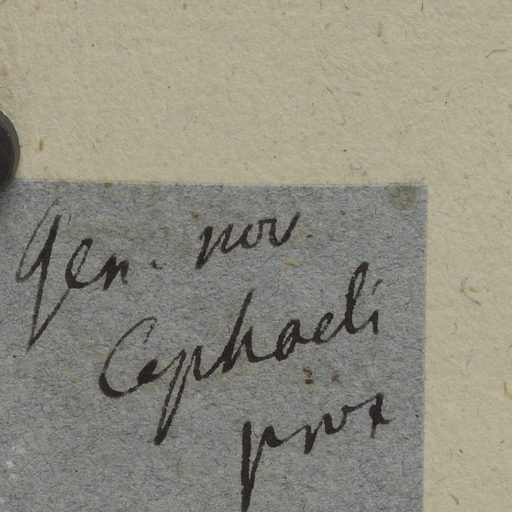 Gen. nov.
Cephaeli
prox